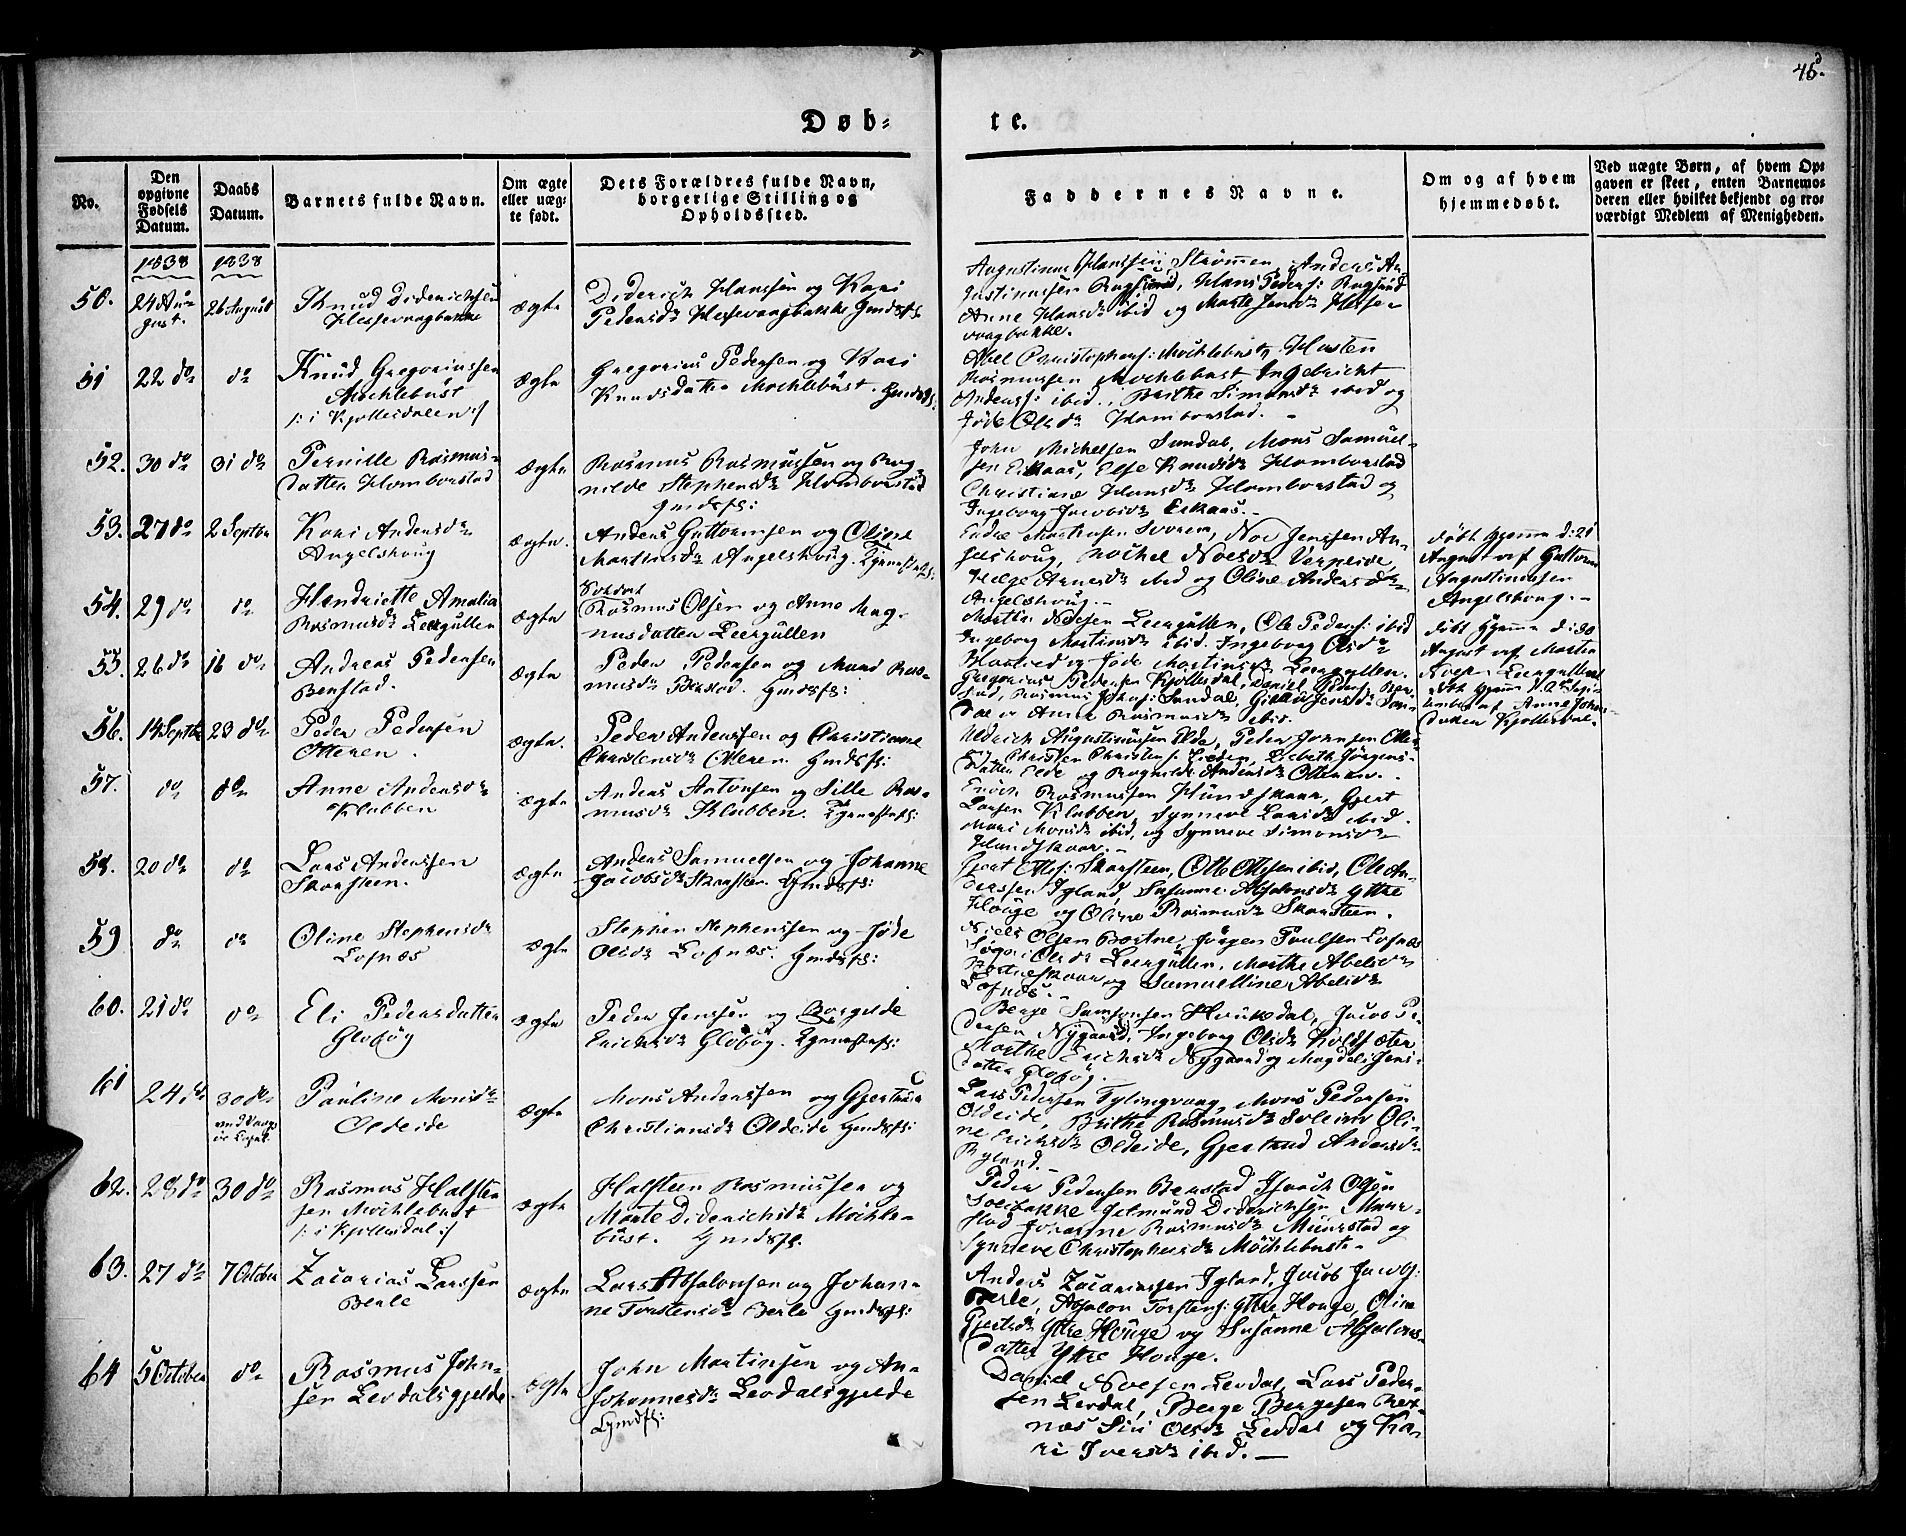 46d.
Døb=
te.
No.
Den opgivne Fødsels Datum.
Daabs Datum.
Barnets fulde Navn.
Om ægte eller uæg=
te født.
Dets Forældres fulde Navn,
borgerlige Stilling og
Opholdssted.
Faddernes Navne.
Om og af hvem
hjemmedøbt.
Ved uægte Børn, af hvem Op=
gaven er skeet, enten Barnemo=
deren eller hvilket bekjendt og tro=
værdigt Medlem af Menigheden.
1838 1838
50. 24 Au=
gust. 26 August
Knud Diderichsen
ægte
Diderich Hanssen og Kari
Pedersdr
Augustinus Hanssen Strømmen, Anders Au=
gustinussen Rugsund, Hans Peders: Rugsund
Anne Hansdr ibid og Marte Jensdr Hesse=
vaagbakke.
51 22 do do
Knud Gregoriussen
Mochlebust
/: i Kjollesdalen :/
ægte
Gregorius Pedersen og Kari
Knudsdatter Mochlebust.
Abel Christophers: Mochlebust, Halsten
Rasmussen Mochlebust Ingebricht
Anderss: ibid., Brithe Simonsdr ibid og
Jøde Olsdr Hamborstad. -
52. 30 do 31 do
Pernille Rasmus=
datter Hamborstad
ægte
Rasmus Rasmussen og Rag=
nilde Stephensdr Hamborstad
John Michelsen Sundal, Mons Samuel=
sen Eikaas, Else Knudsdr Hamborstad
Christiane Hansdr Hamborstad og
Ingeborg Jacobsdr Eikaas. -
53. 27 do 2 Septbr
Kari Andersdr
Angelshoug
ægte.
Anders Guttormsen og Oline
Martinsdr Angelshoug.
Endre Martinsen Svoren, Noe Jenssen An=
gelshoug, Rachel Noesdr Verpeide,
Helge Arnesdr ibid og Oline Andersdr
Angelshoug. -
døbt hjemme d: 21
August af Guttorm
Augustinussen
Angelshoug. -
54. 29 do do
Hendriette Amalia
Rasmusdr Leergullen
ægte
Soldat
Rasmus Olsen og Anne Mag=
nusdatter Leergullen
Martin Noesen Leergullen, Ole Peders: ibid
Ingeborg Martinsdr ibid. Ingeborg Olsdr
og Jøde Martinsdr Leergullen.
døbt hjemme d: 30
August af Martin
Leergullen
55. 26 do 16 do
Andreas Pedersen
Berstad.
ægte
Peder Pedersen og Maud Ras=
musdr Berstad.
Gregorius Pedersen Kjollesdal, Daniel Peders: Ber=
stad, Rasmus Johns: Sundal, Gisken Jensdr Sun=
dal og Anne Rasmusdr ibid.
døbt hjemme
af Anne Johns=
datter Kjollesdal.
56. 14 Septbr 23 do
Peder Pedersen
Otteren.
ægte.
Peder Anderssen og Christianne
Christensdr Otteren.
Uldrich Augustinussen Elde, Peder Johnsen Otte=
ren, Christen Christens: Lieden, Lisbeth Jörgens=
datter Elde og Ragnilde Andersdr Otteren.
57. do do
Anne Andersdr
Klubben
ægte
Anders Antonsen og Sille Ras=
musdr Klubben.
Enoch Rasmussen Hundskaar, Gjert
Larsen Klubben, Synneve Larsdr ibid.
Mari Monsdr ibid, og Synneve Simonsdr
Hundskaar. -
58. 20 do do
Lars Anderssen
Skarsteen.
ægte
Anders Samuelsen og Johanne
Jacobsdr Skarsten.
Gjert Olss: Skarsteen, Otte Ottesen ibid, Ole An=
derssen Igland, Susanne Absalonsdr Yttre
Houge og Oline Rasmusdr Skarsteen.
59 do do
Oline Stephensdr
Lofnæs
ægte
Stephen Stephenssen og Jøde
Olsdr Lofnæs.
Niels Olsen Bortne, Jörgen Poulsen Lofnæs
Olsdr Leergullen, Marthe Abelsdr
og Samueline Abelsdr
Lofnæs. -
60. 21 do do
Eli Pedersdatter
Globög
ægte
Peder Jenssen og Borgilde
Erichsdr Globög.
Berge Samsonsen Haukedal, Jacob Pe=
dersen Nygaard, Ingeborg Olsdr Koldsæter
Marthe Erichsdr Nygaard og Magdeli Jens=
datter Globög.
61 24 do 30 do
Pauline Monsdr
Oldeide
ægte
Mons Anderssen og Gjertrud
Christiansdr Oldeide
Lars Pedersen Tytingvaag, Mons Pedersen
Oldeide, Brithe Rasmusdr Soleim Oli=
ne Erichsdr Oldeide, Gjertrud Andersdr
Ryland. -
62. 28 do 30 do
Rasmus Halsten
sen Mochlebust
/: i Kjollesdal :/
ægte
Halsteen Rasmussen og
Marte Diderichsdr Mochle=
bust.
Peder Pedersen Berstad Isach Olsen
Solibakke Sedmund Diderichsen Maur=
stad Johanne Rasmusdr Maurstad og
Synneve Christophersdr Mochlebust. -
63. 27 do 7 October
Zacarias Larssen
Berle
ægte
Lars Absalonsen og Johan=
ne Torstensdr Berle
Anders Zacariassen Igland, Jacob Jacobs:
Berle, Absalon Torstens: Yttre Houge, Oline
Gjertsdr Yttre Houge og Susanne Absalons=
datter Yttre Houge.
64 5 October do
Rasmus John=
sen Levdalsgjelde
ægte
John Martinsen og An=
Johannesdr Levdalsgjelde
Daniel Noesen Levdal, Lars Peder=
sen Levdal, Berge Bergesen Rex=
næs Siri Olsdr Levdal og Ka=
ri Iversdr ibid. —